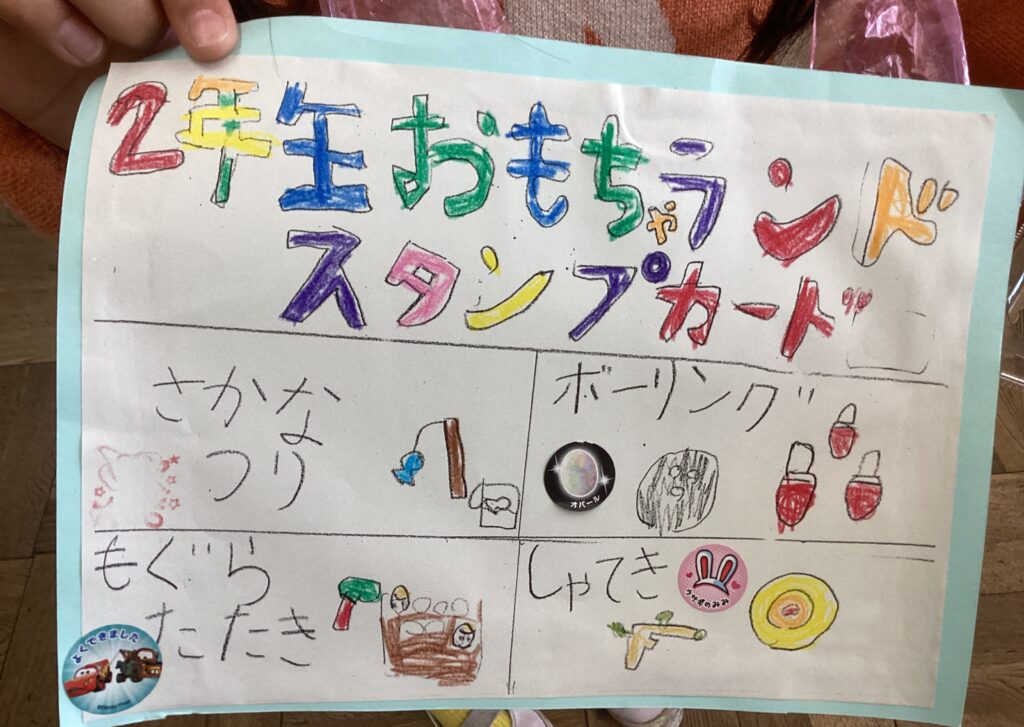 2年生おもちゃランド
スタンプカード
さかな
つり
ボーリング
オパール
もぐら
たたき
よくできました
しゃてき
ウサギのみみ